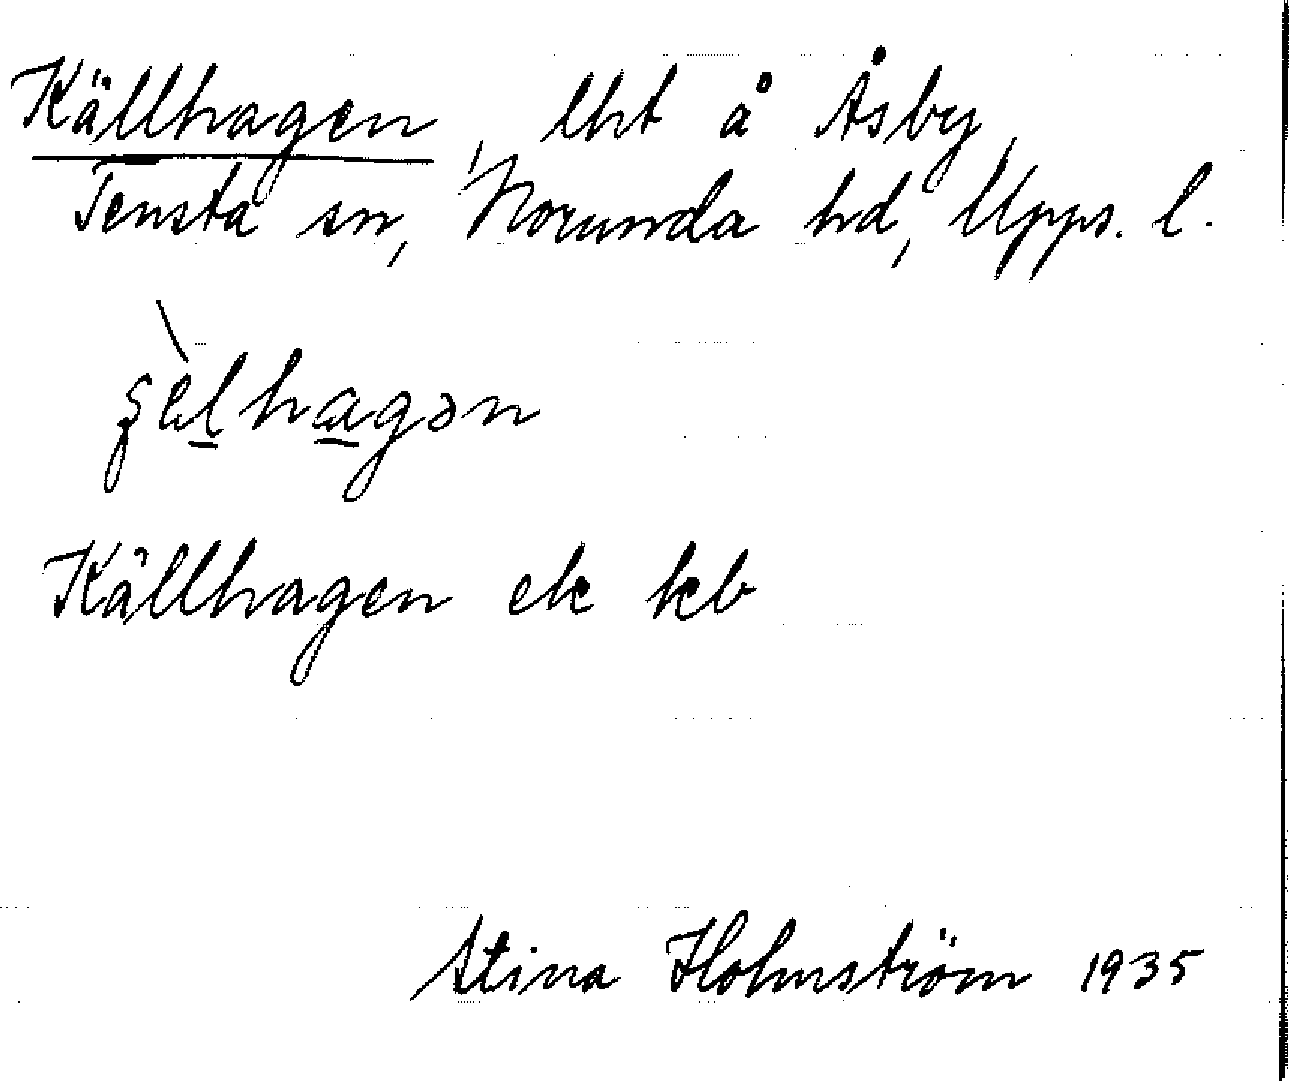 Källhagen, lht å Åsby,
Tensta sn, Norunda hd, Upps. l.
Källhagen ek kb
Stina Holmström 1935